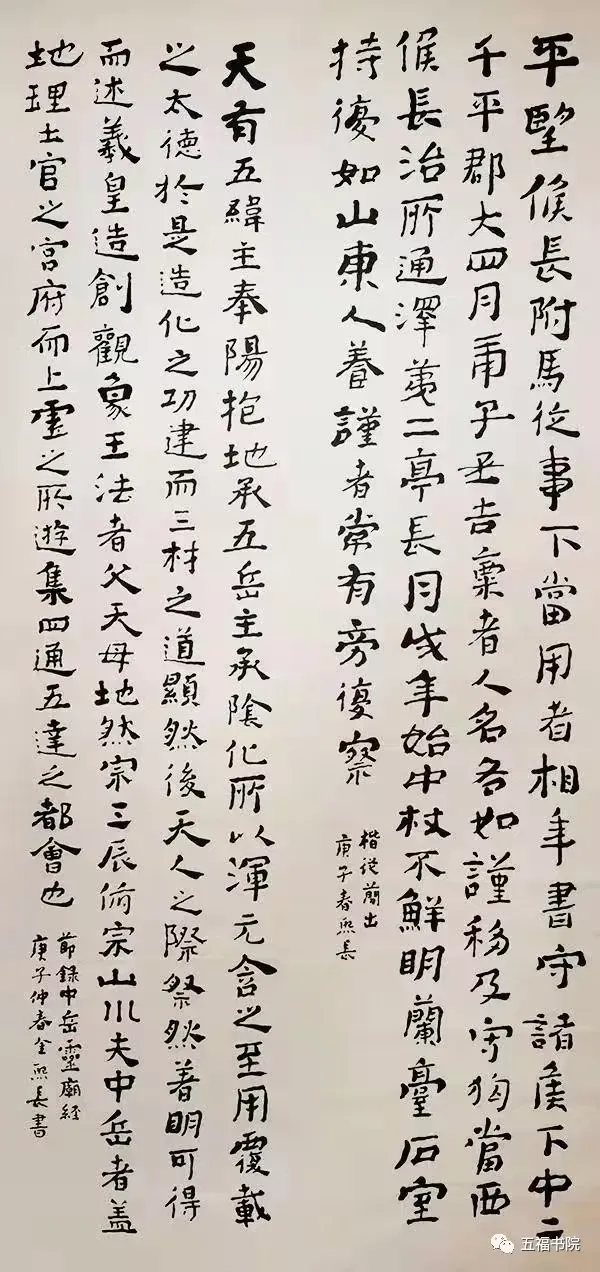 平望候長附馬從事下當用者相年書守諸侯下中二
千平郡大四月甬子丑吉稟者人名各如謹移及守狗當西
候長治所通澤第二亭長月戌年始中杖不鮮明蘭臺石室
持復如山東人養謹者常有旁復察
楷從簡出
庚子春熙長
天有五緯主奉陽抱地承五岳主承陰化所以渾元含之至用覆載
之太德於是造化之功建而三材之道顯然後天人之際祭然著明可得
而述羲皇造創觀象王法者父天母地然宗三辰俯宗山川夫中岳者盖
地理土官之宮府而上靈之所遊集四通五達之都會也
節録中岳靈廟經
庚子仲春金熙長書
五福书院